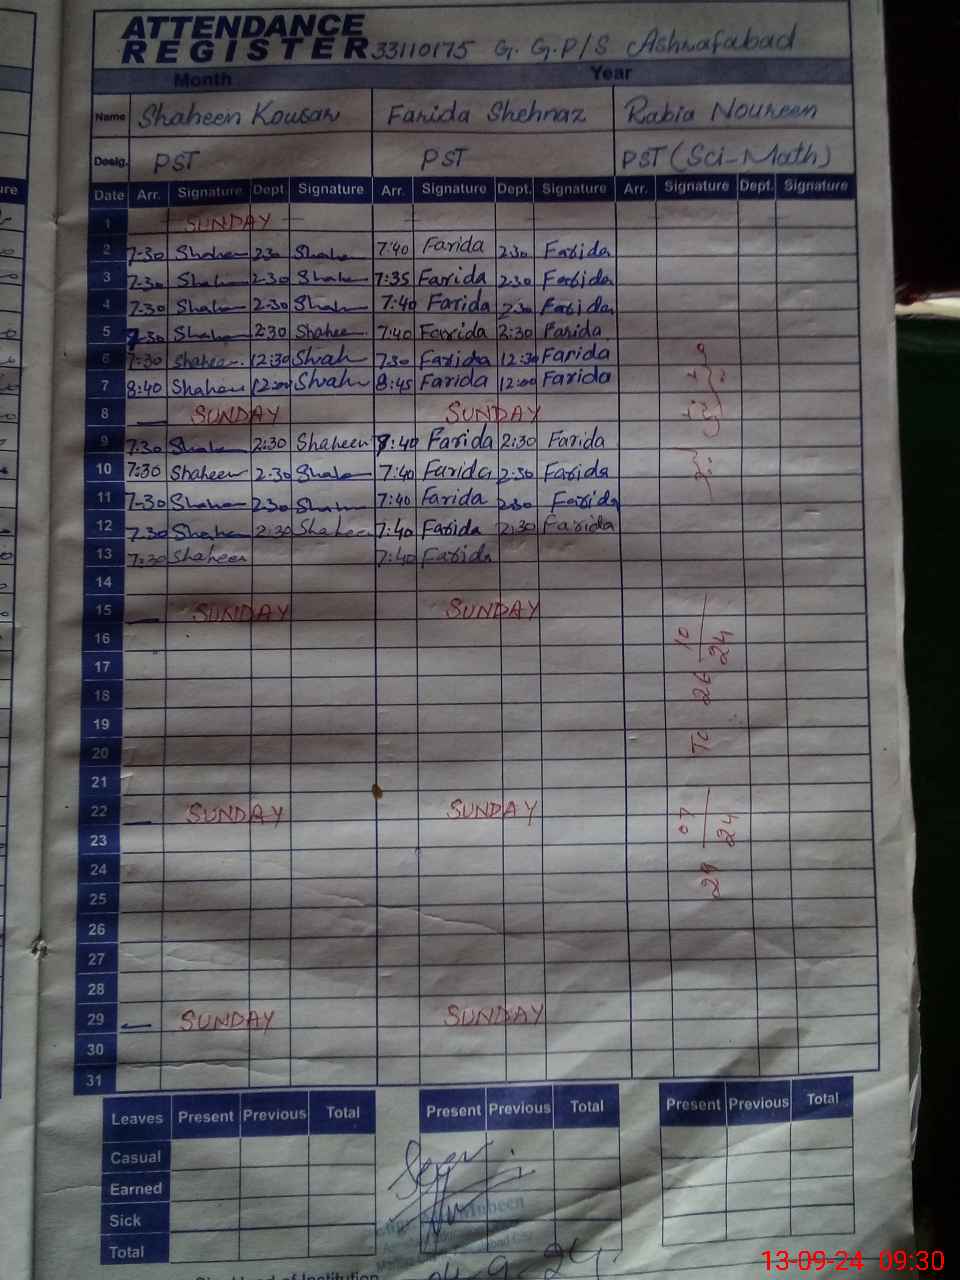 ATTENDANCE
REGISTER 33110175 G.G.P/S Ashrafabad
Month Year
Name Shaheen Kousar Farida Shehnaz Rabia Noureen
Desig. PST PST PST (Sci-Math)
Date Arr. Signature Dept. Signature Arr. Signature Dept. Signature Arr. Signature Dept. Signature
1 SUNDAY
2 7-30 Shaheen 2:30 Shaheen 7:40 Farida 2:30 Farida
3 7-30 Shaheen 2-30 Shaheen 7:35 Farida 2:30 Farida
4 7-30 Shaheen 2-30 Shaheen 7:40 Farida 2:30 Farida
5 7-30 Shaheen 2:30 Shaheen 7:40 Farida 2:30 Farida
6 7:30 Shaheen 12:30 Shah 7:30 Farida 12:30 Farida
7 8:40 Shaheen 12:00 Shah 8:45 Farida 12:00 Farida
8 — SUNDAY SUNDAY
9 7:30 Shaheen 2:30 Shaheen 7:40 Farida 2:30 Farida
10 7:30 Shaheen 2-30 Shaheen 7:40 Farida 2:30 Farida
11 7-30 Shaheen 2:30 Shaheen 7:40 Farida 2:30 Farida
12 7:30 Shaheen 2:30 Shaheen 7:40 Farida 2:30 Farida
13 7:30 Shaheen 7:40 Farida
14
15 — SUNDAY SUNDAY
16
17
18
19
20
21
22 — SUNDAY SUNDAY
23
24
25
26
27
28
29 — SUNDAY SUNDAY
30
31
29 07/24 To 26 10/24
Leaves Present Previous Total Present Previous Total Present Previous Total
Casual
Earned
Sick
Total
Mubeen
13-09-24 09:30